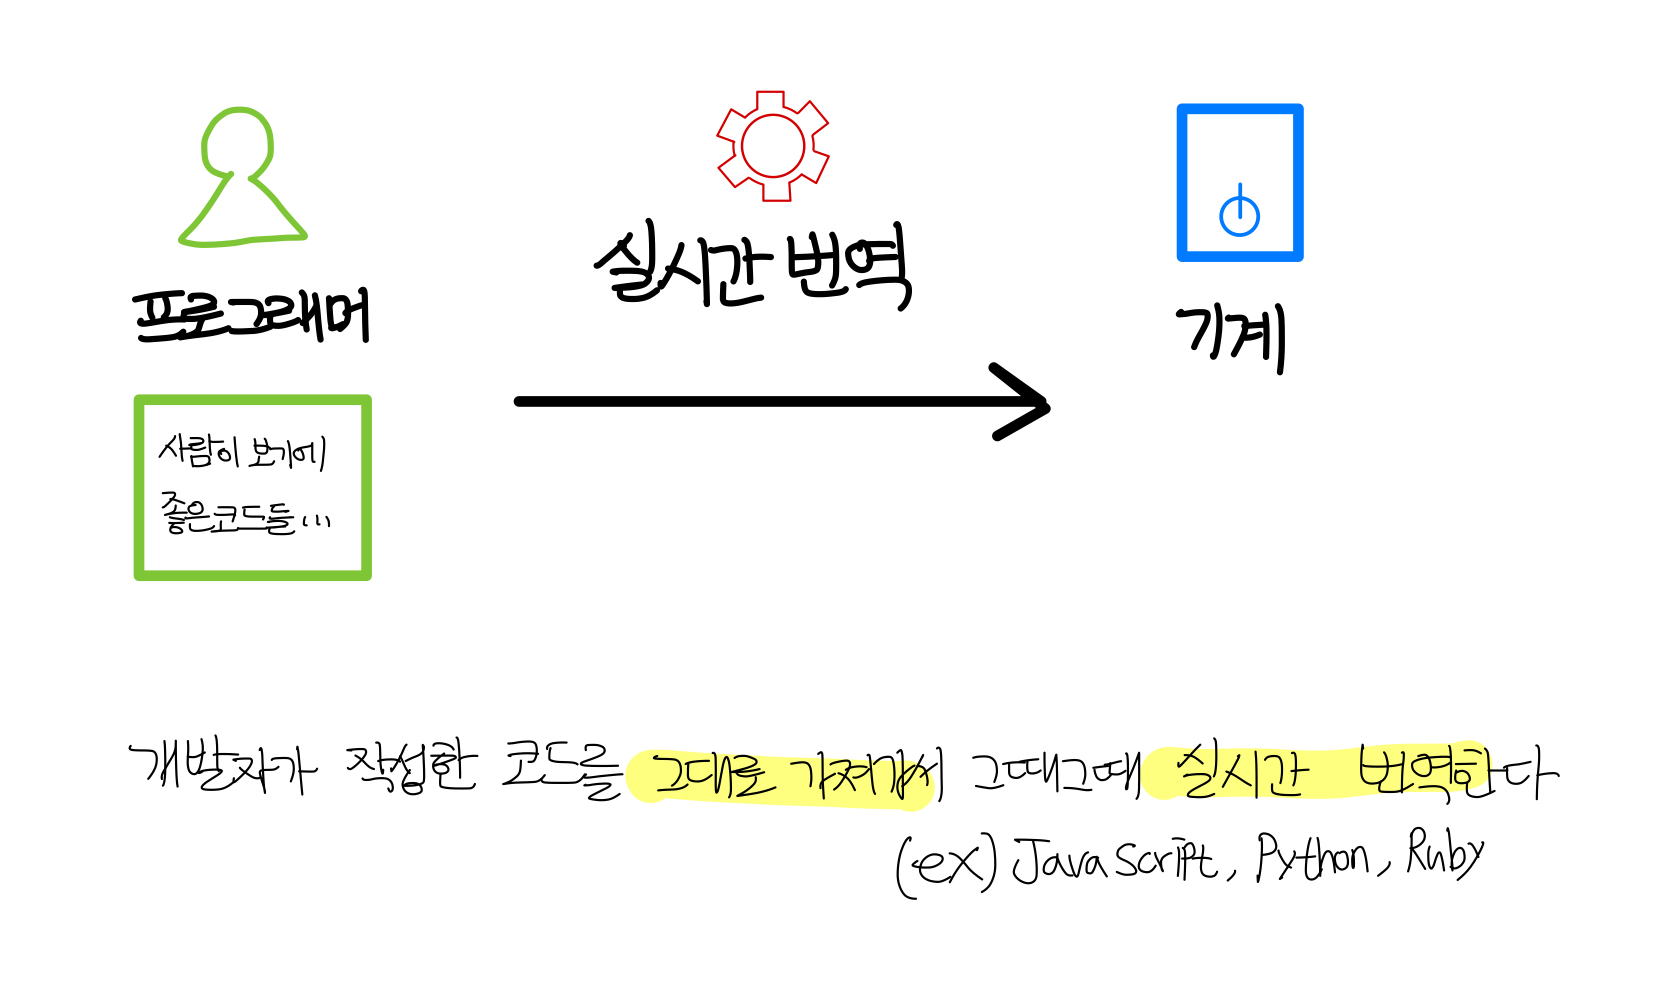 프로그래머
실시간 번역
기계
사람이 보기에
좋은코드들...
개발자가 작성한 코드를 그대로 가져가서 그때그때 실시간 번역한다
(ex) JavaScript, Python, Ruby